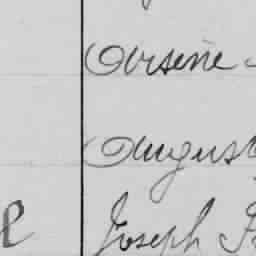 Arsène
August
Joseph